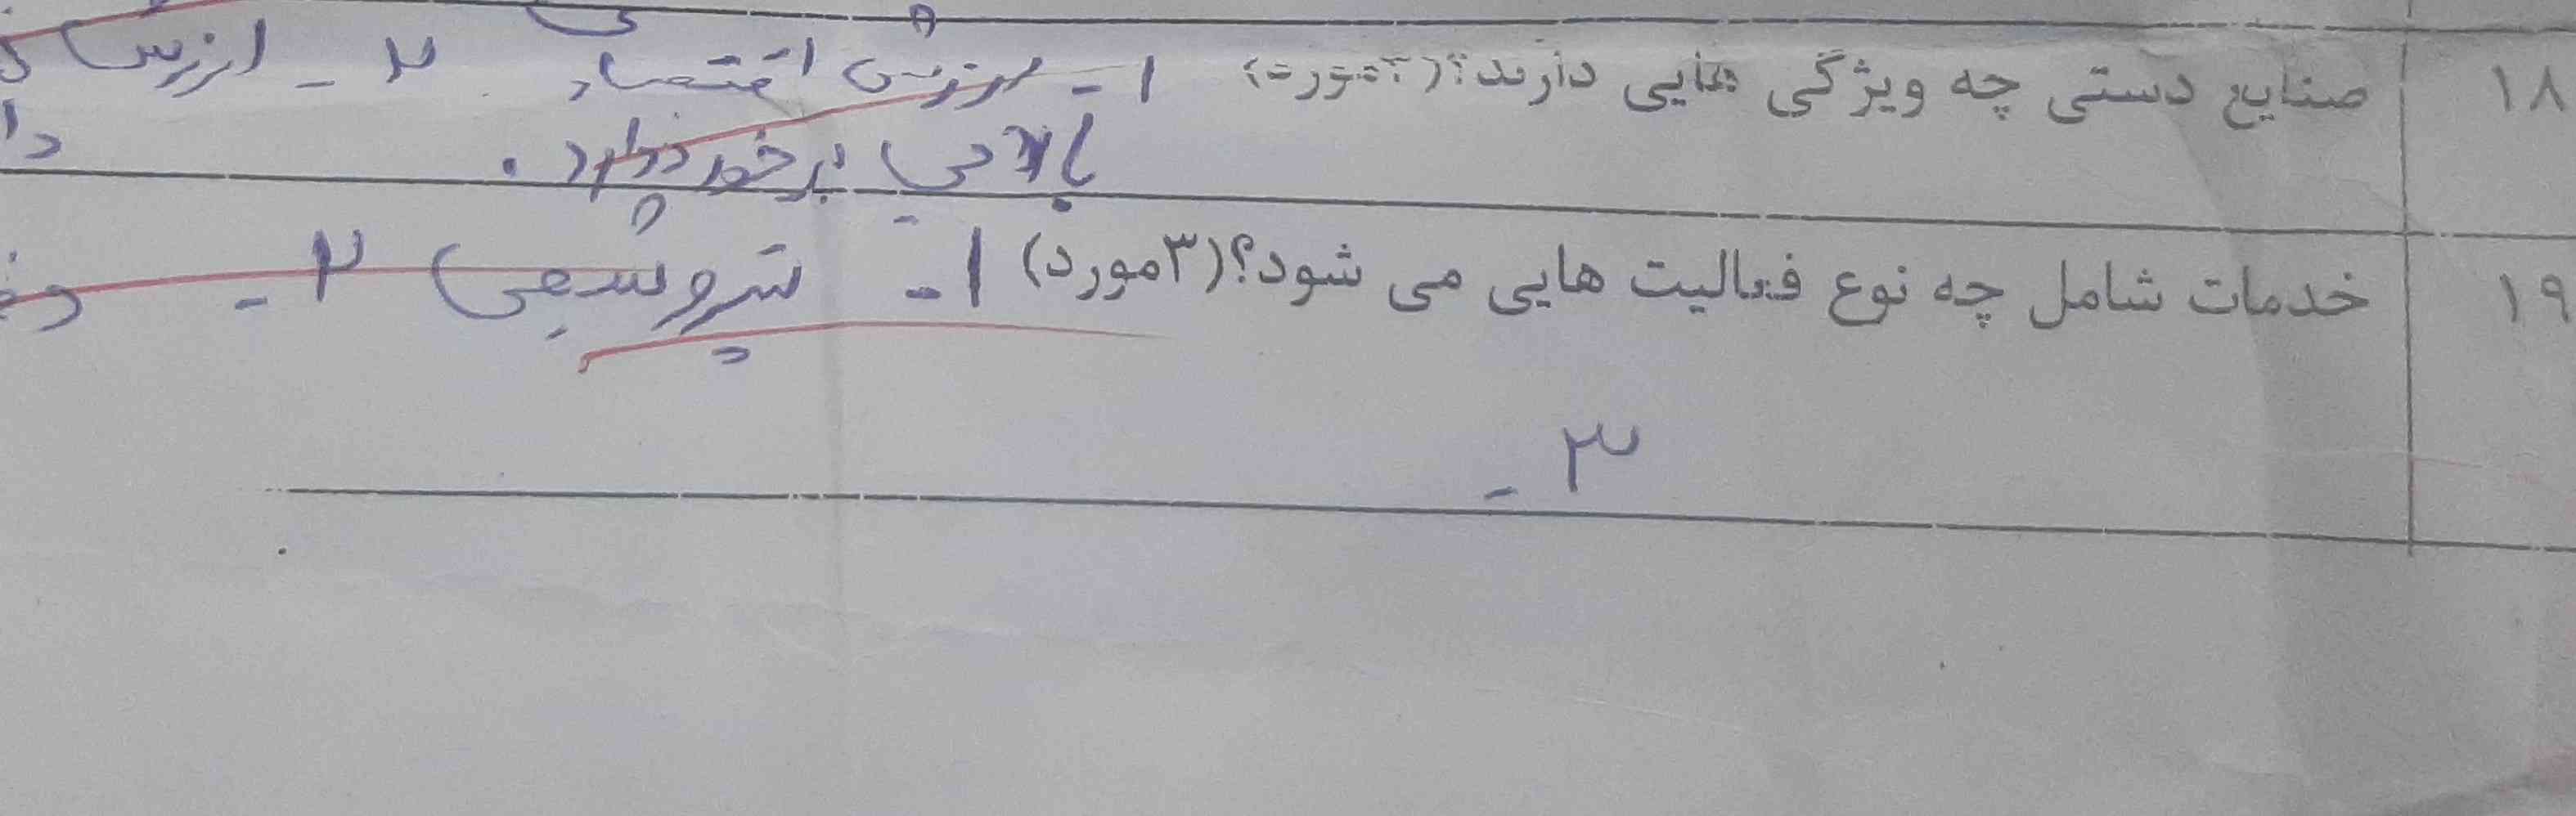 ۱۸ صنایع دستی چه ویژگی هایی دارند؟ ۱- ارزش اقتصاد ۲- ارزش
بالایی برخوردارد. دا
۱۹ خدمات شامل چه نوع فعالیت هایی می شود؟(۳مورد) ۱- ۲-
۳-